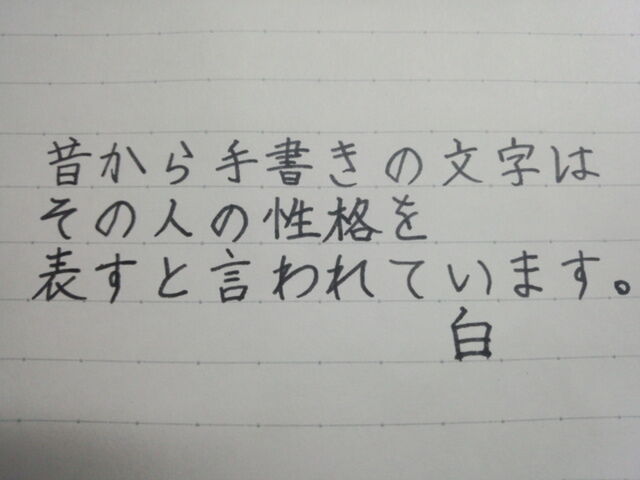 昔から手書きの文字は
その人の性格を
表すと言われています。
白